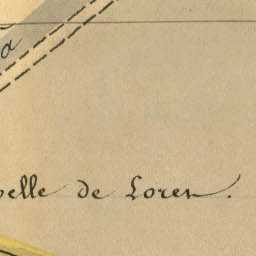 a
pelle de Loren.